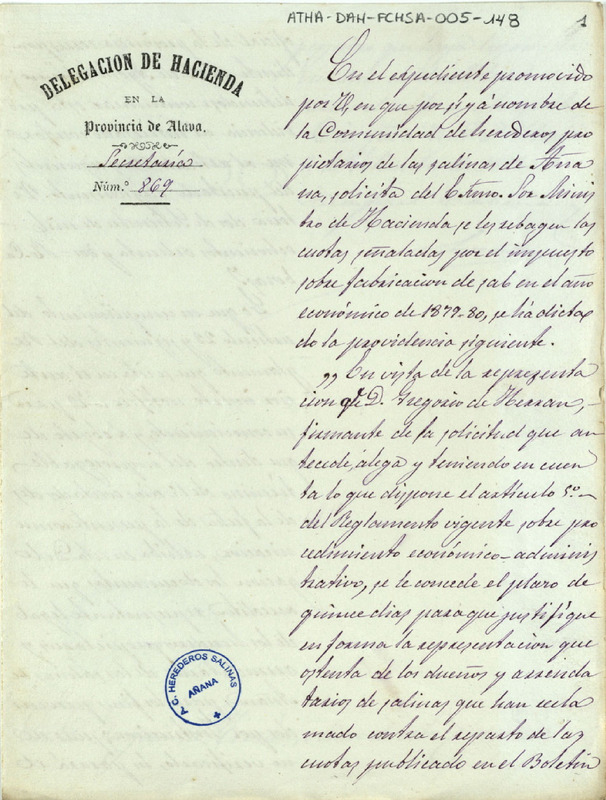 ATHA-DAH-FCHSA-005-148
1
DELEGACION DE HACIENDA
EN LA
Provincia de Alava.
Secretaría
Núm.º 869
En el expediente promovido
por V, en que por sí y á nombre de
la Comunidad de herederos pro
pietarios de las salinas de Aña
na, solicita del Exmo. Sor Minis
tro de Hacienda se les rebagen las
cuotas señaladas por el impuesto
sobre fabricacion de sal en el año
económico de 1879-80, se há dicta
do la providencia siguiente.
„ En vista de la representa
cion qe D. Gregorio de Herran,
firmante de la solicitud que an
tecede, alega y teniendo en cuen
ta lo que dispone el artículo 5.º
del Reglamento vigente sobre pro
cedimiento económico-adminis
trativo, se le concede el plazo de
quince dias para que justifique
en forma la representacion que
ostenta de los dueños y arrenda
tarios de salinas que han recla
mado contra el reparto de las
cuotas publicado en el Boletin
A. C. HEREDEROS SALINAS
AÑANA